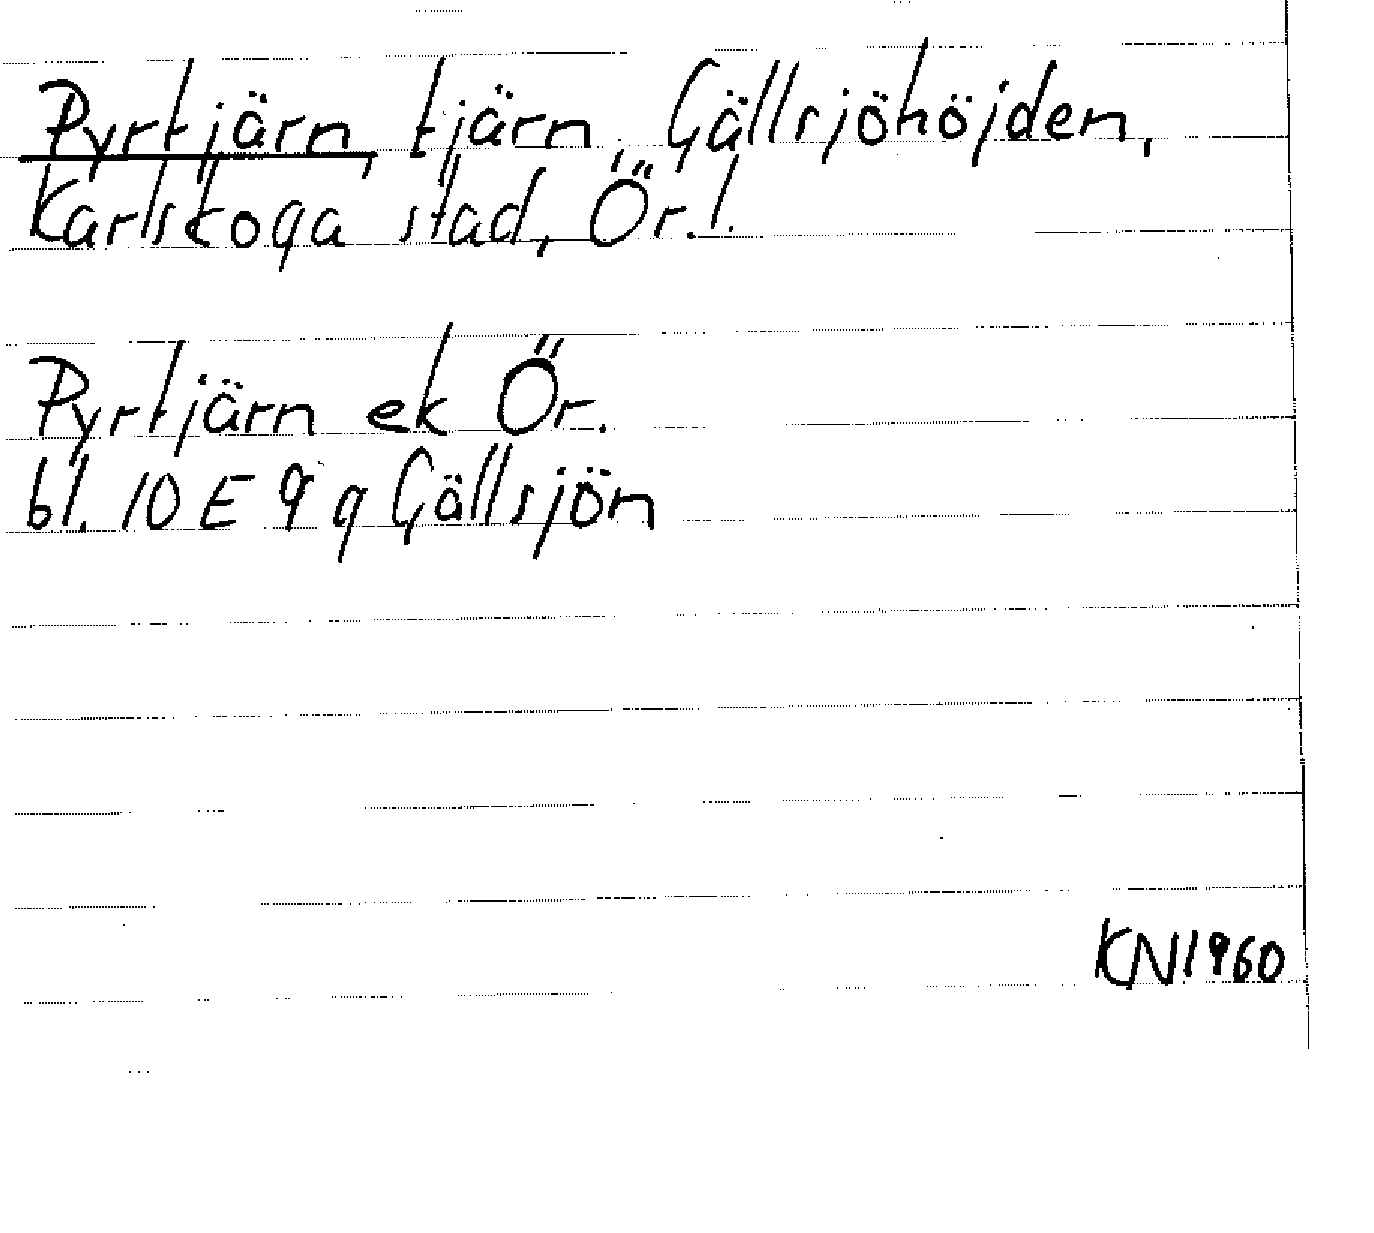 Pyrtjärn, tjärn, Gällsjöhöjden,
Karlskoga stad, Ör.l.
Pyrtjärn ek Ör.
bl. 10 E 9 g Gällsjön
KN1960